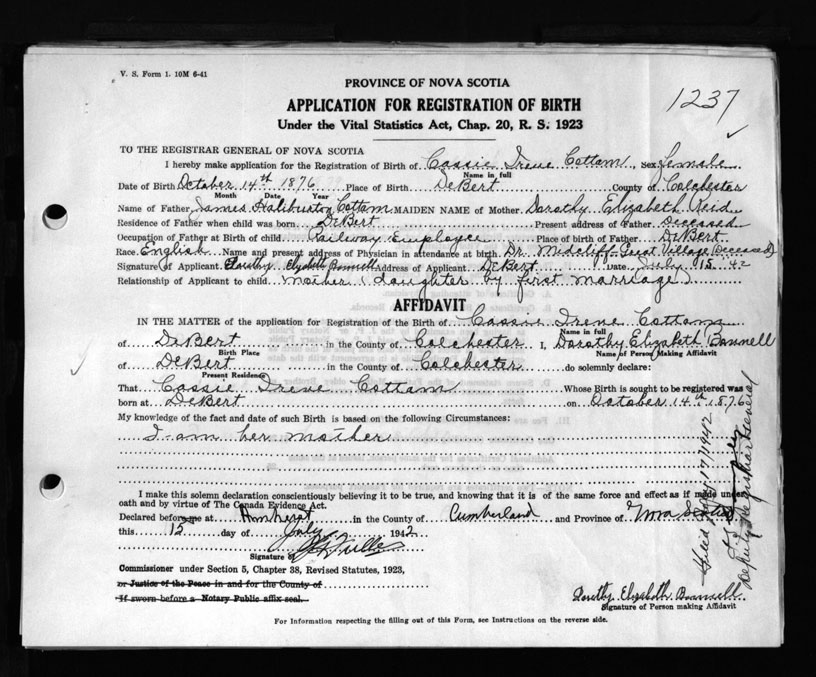 V. S. Form 1. 10M 6-41
PROVINCE OF NOVA SCOTIA
1237
APPLICATION FOR REGISTRATION OF BIRTH
Under the Vital Statistics Act, Chap. 20, R. S. 1923
TO THE REGISTRAR GENERAL OF NOVA SCOTIA
I hereby make application for the Registration of Birth of Cassie Irene Cottam, sex female
Name in full
Date of Birth October 14th 1876 Place of Birth DeBert County of Colchester
Month Date Year
Name of Father James Haliburton Cottam MAIDEN NAME of Mother Dorothy Elizabeth Reid
Residence of Father when child was born DeBert Present address of Father Deceased
Occupation of Father at Birth of child Railway Employee Place of birth of Father DeBert
Race English Name and present address of Physician in attendance at birth Dr Great Village (Deceased)
Signature of Applicant Dorothy Elizabeth Bonnell Address of Applicant DeBert Date July 15 42
Relationship of Applicant to child mother (daughter by first marriage)
AFFIDAVIT
IN THE MATTER of the application for Registration of the Birth of Cassie Irene Cottam
Name in full
of DeBert in the County of Colchester I, Dorothy Elizabeth Bonnell
Birth Place Name of Person Making Affidavit
of DeBert in the County of Colchester do solemnly declare:
Present Residence
That Cassie Irene Cottam Whose Birth is sought to be registered was
born at DeBert on October 14th 1876
My knowledge of the fact and date of such Birth is based on the following Circumstances:
I am her mother
I make this solemn declaration conscientiously believing it to be true, and knowing that it is of the same force and effect as if made under
oath and by virtue of The Canada Evidence Act.
Declared before me at Amherst in the County of Cumberland and Province of Nova Scotia
this 15 day of July 1942
Signature of
Commissioner under Section 5, Chapter 38, Revised Statutes, 1923,
or Justice of the Peace in and for the County of
If sworn before a Notary Public affix seal.
Dorothy Elizabeth Bonnell
Signature of Person making Affidavit
For Information respecting the filling out of this Form, see Instructions on the reverse side.
Filed July 17/1942
Deputy Registrar General